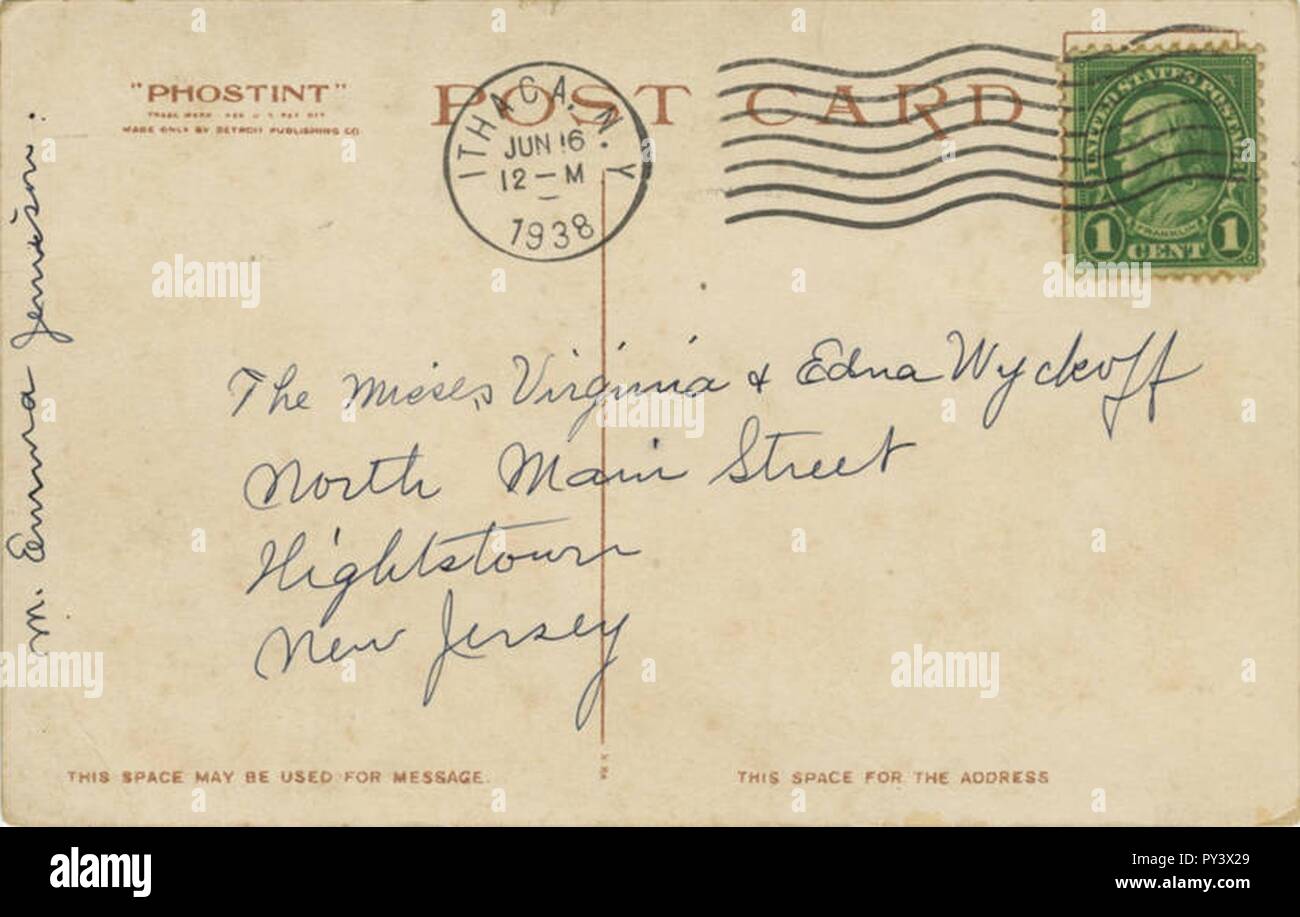 "PHOSTINT"
TRADE MARK REG U S PAT OFF
MADE ONLY BY DETROIT PUBLISHING CO
POST CARD
ITHACA, N.Y
JUN 16
12–M
1938
UNITED STATES POSTAGE
FRANKLIN
1 CENT 1
M. Emma Jemison.
The Misses Virginia & Edna Wyckoff
North Main Street
Hightstown
New Jersey
THIS SPACE MAY BE USED FOR MESSAGE.
THIS SPACE FOR THE ADDRESS
a alamy stock photo
alamy
Image ID: PY3X29
www.alamy.com